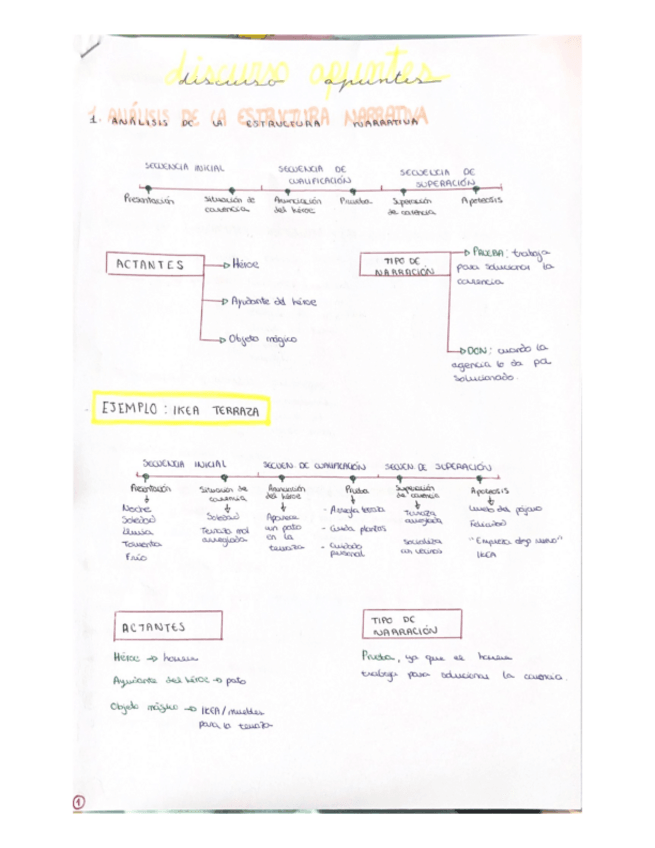 discurso apuntes
1. ANÁLISIS DE LA ESTRUCTURA NARRATIVA
SECUENCIA INICIAL
SECUENCIA DE CUALIFICACIÓN
SECUENCIA DE SUPERACIÓN
Presentación
Situación de carencia
Anunciación del héroe
Prueba
Superación de carencia
Apoteosis
ACTANTES
Héroe
Ayudante del héroe
Objeto mágico
TIPO DE NARRACIÓN
PRUEBA: trabaja
para solucionar la
carencia
DON: cuando la
agencia lo da por
solucionado.
EJEMPLO: IKEA TERRAZA
SECUENCIA INICIAL
SECUEN DE CUALIFICACIÓN
SECUEN DE SUPERACIÓN
Presentación
Noche
Soledad
Lluvia
Tormenta
Frío
Situación de carencia
Soledad
Terraza mal
arreglada
Anunciación del héroe
Aparece
un pato
en la
terraza
Prueba
- Arregla terraza
- Cuida plantas
- Cuidado
personal
Superación de carencia
Terraza
arreglada
Socializa
con vecinos
Apoteosis
del pájaro
Felicidad
"Empieza algo nuevo"
IKEA
ACTANTES
Héroe → hombre
Ayudante del héroe → pato
Objeto mágico → IKEA/muebles
para la terraza
TIPO DE
NARRACIÓN
Prueba, ya que el hombre
trabaja para solucionar la carencia.
1